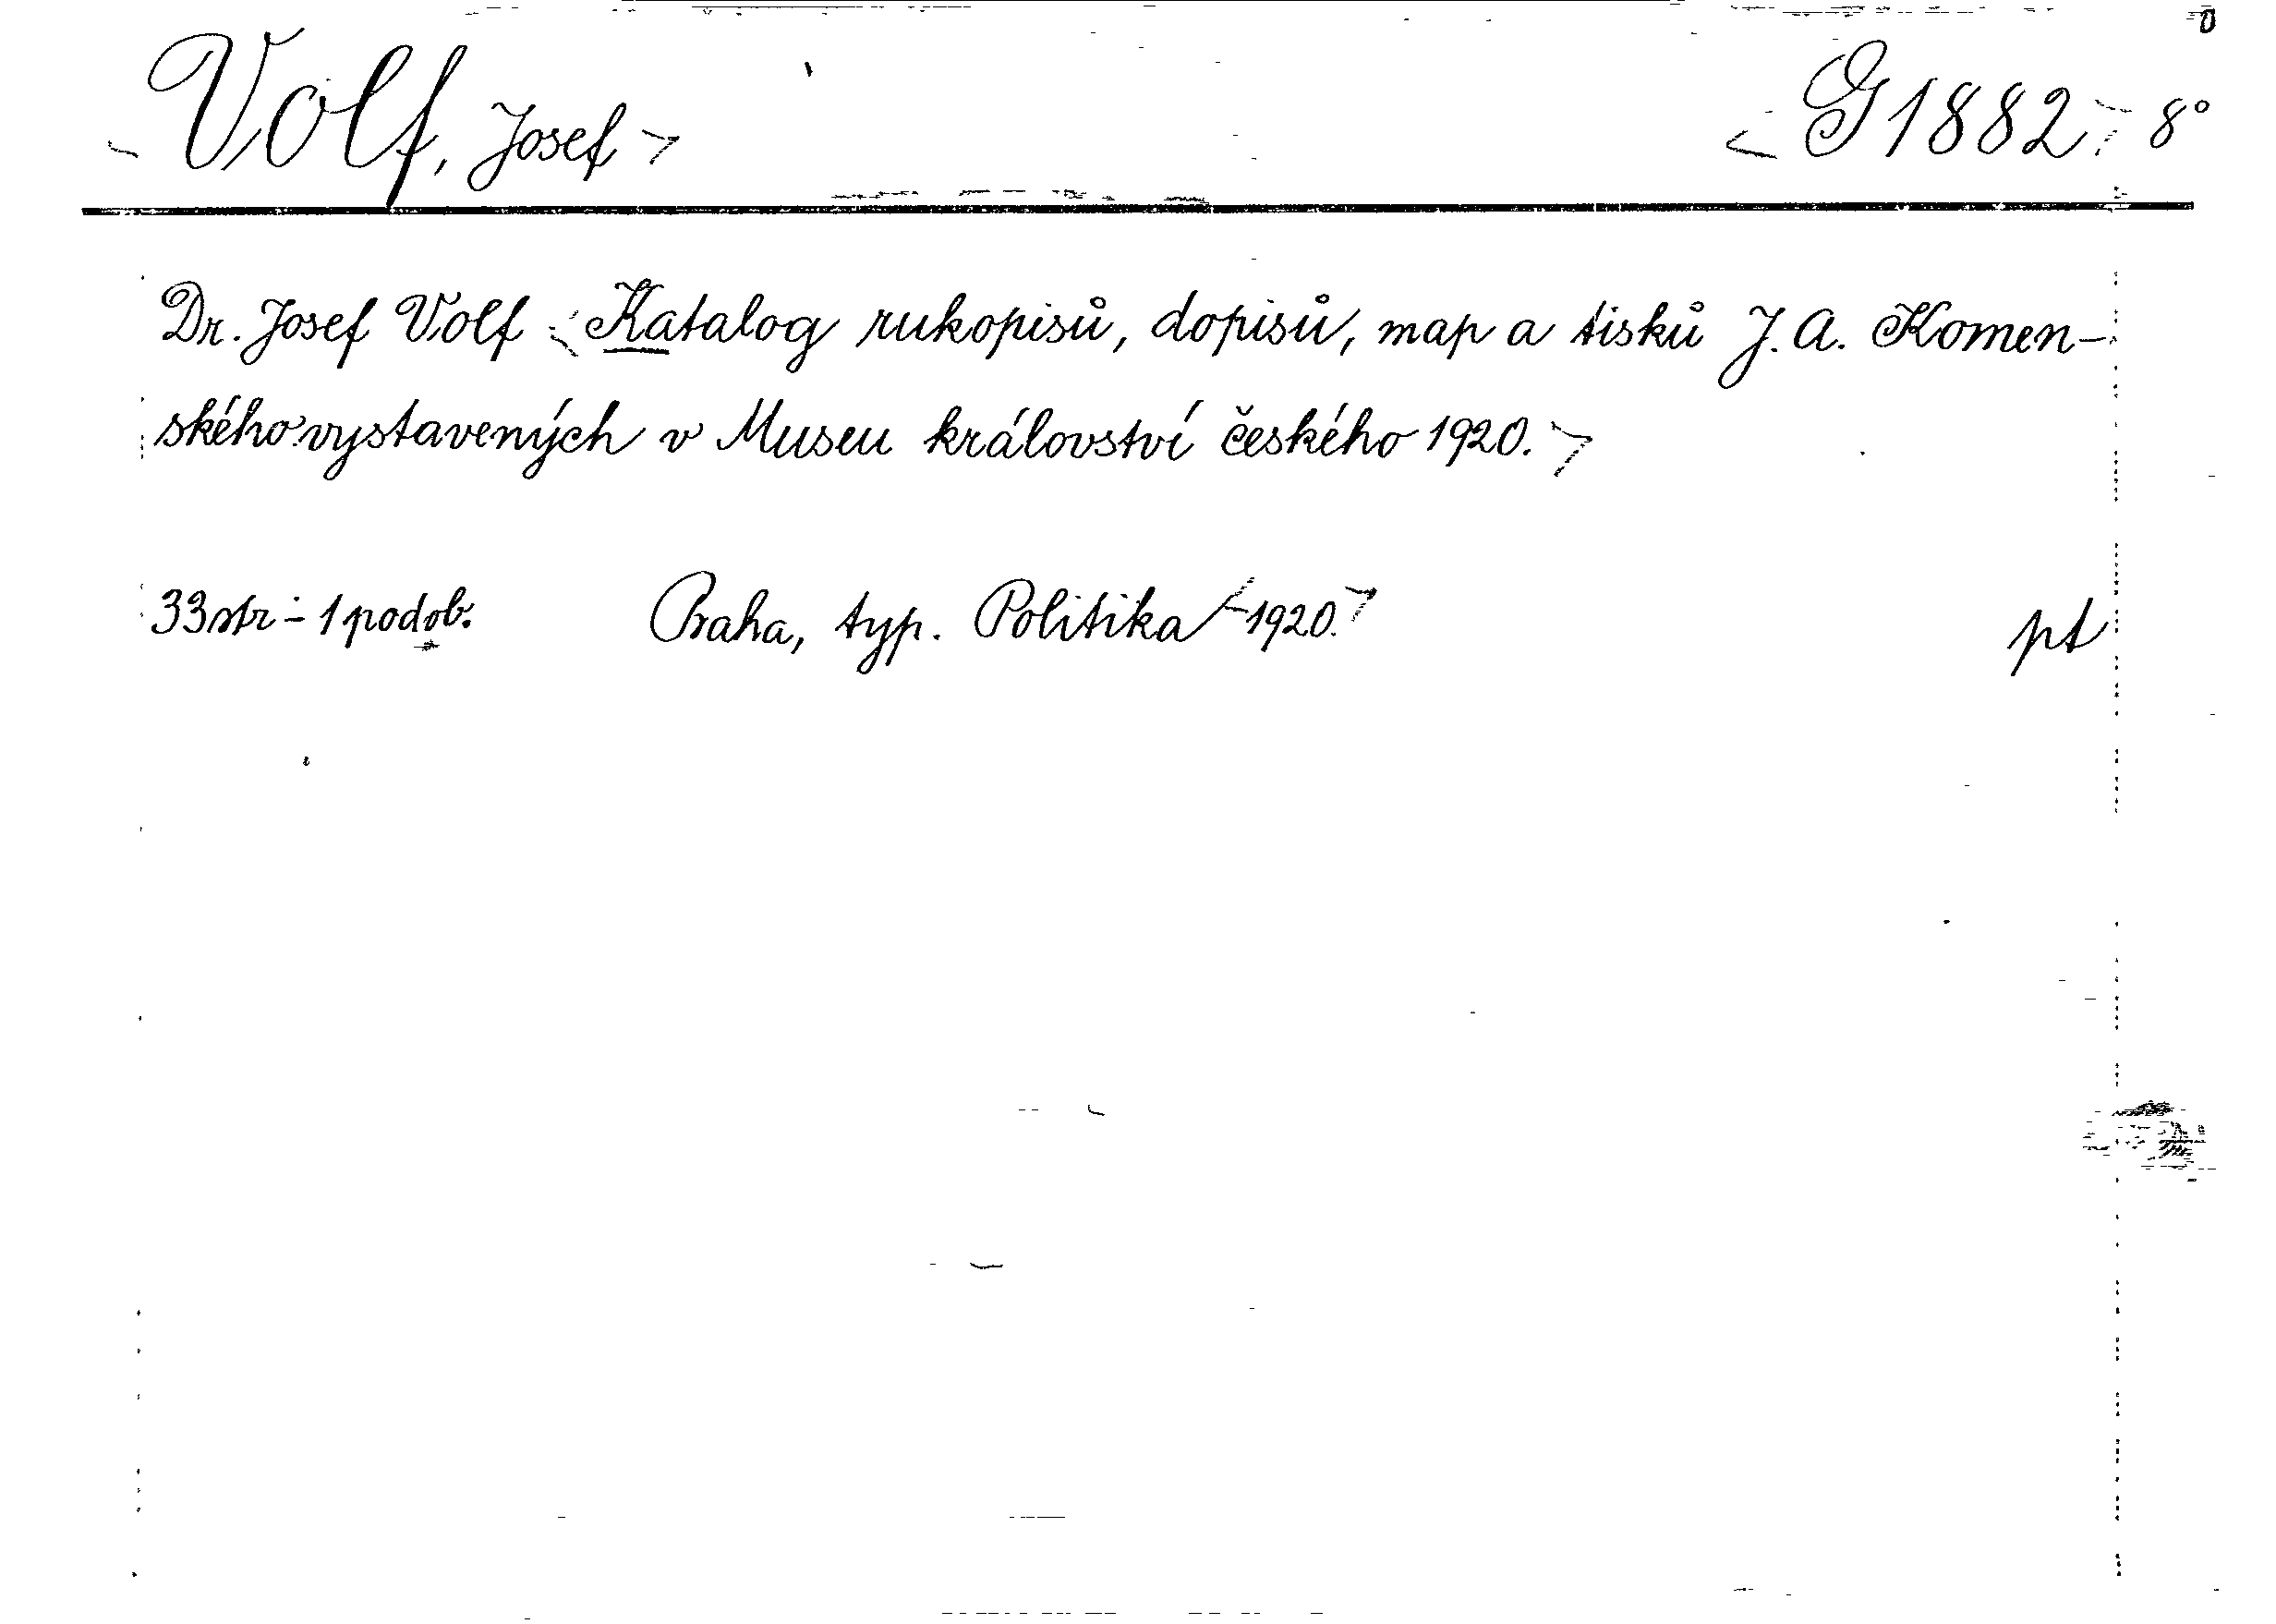 Volf, Josef G 1882 8°
Dr. Josef Volf Katalog rukopisů, dopisů, map a tisků J. A. Komen-
ského vystavených v Museu království českého 1920.
33 str - 1 podob. Praha, typ. Politika 1920. pt